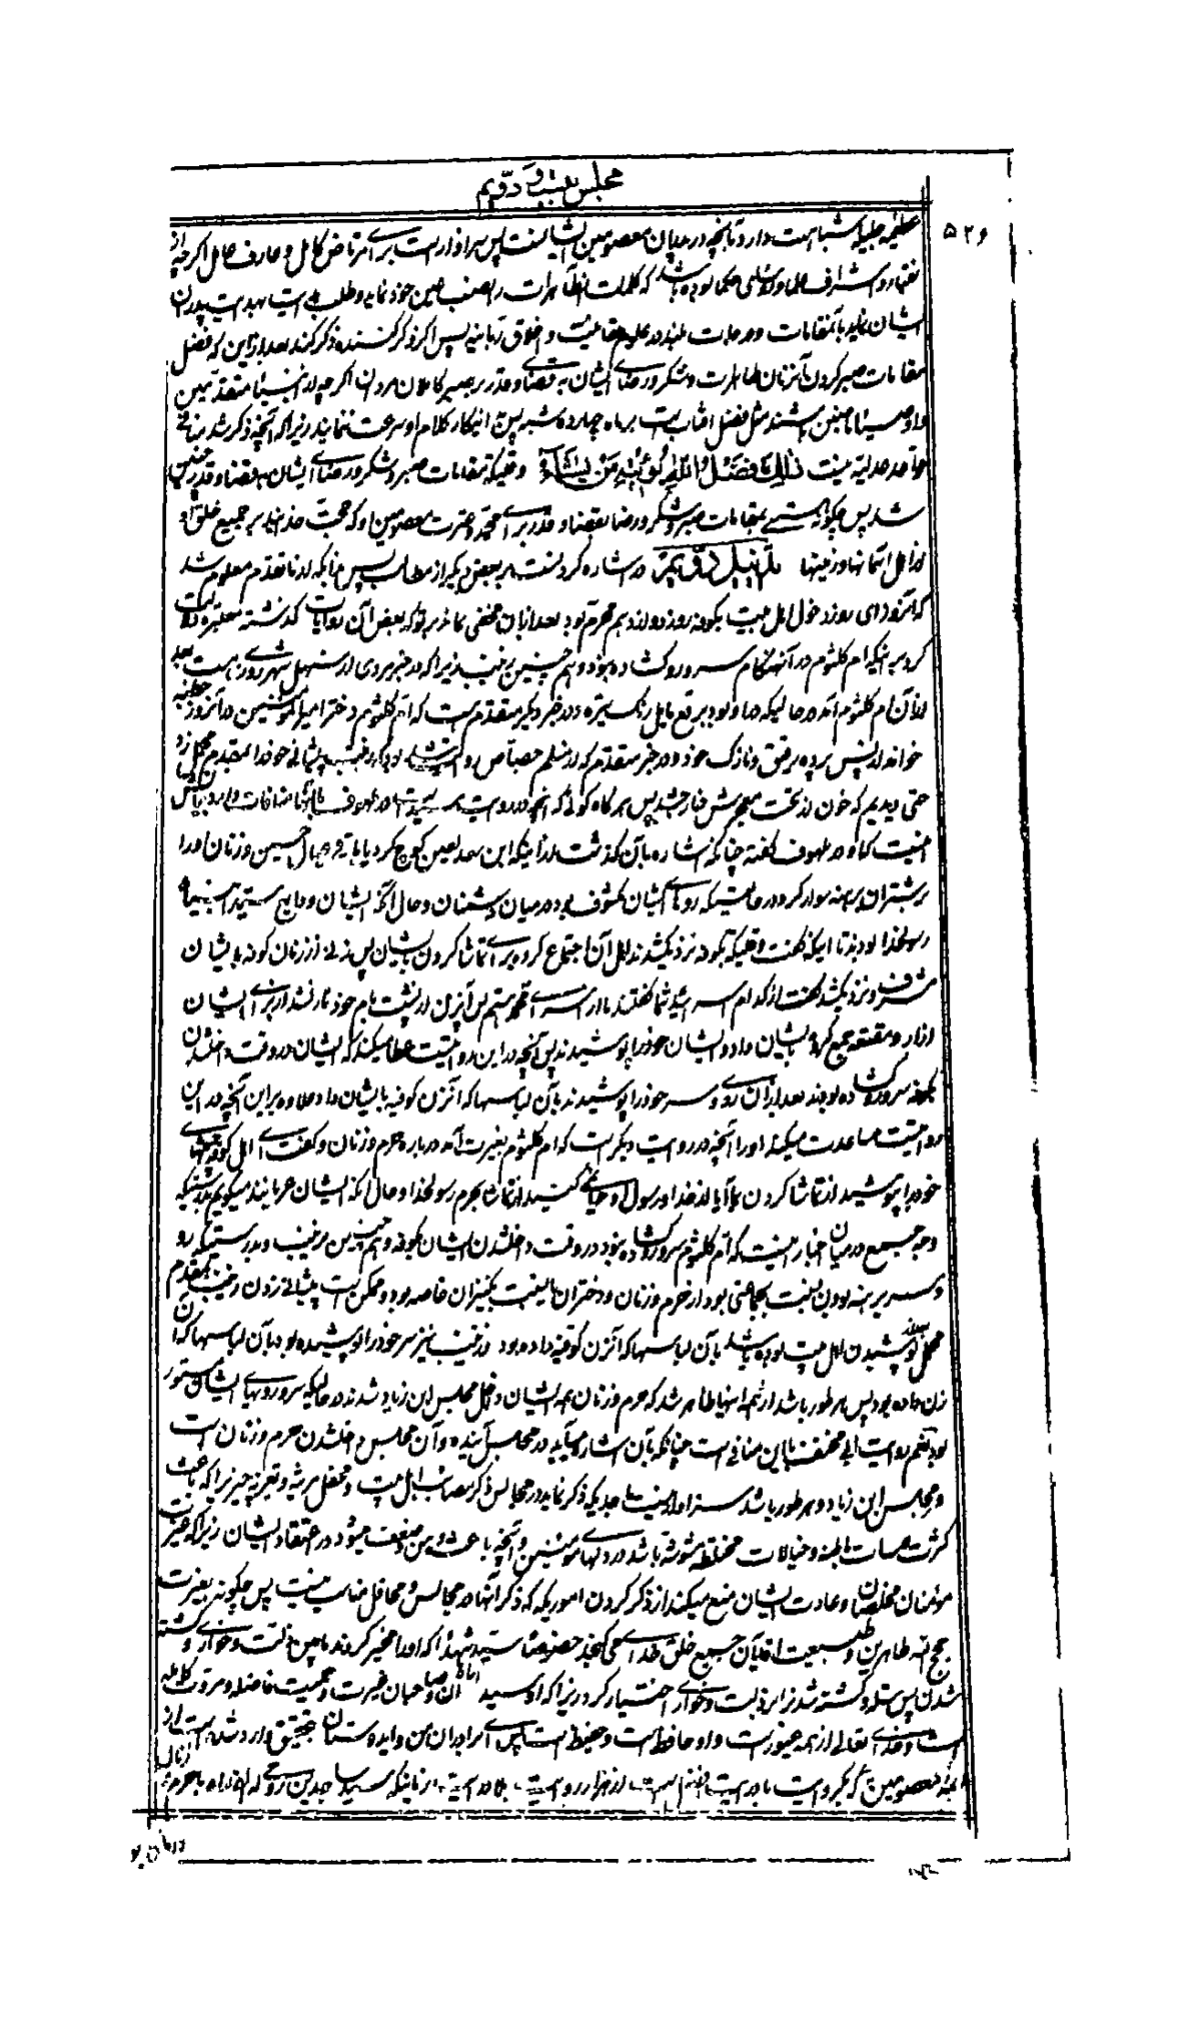 مجلس بیست و دویم
۵۲۶
عظیمه جلیله شباهت دارد بآنچه در میان معصومین ایشانست پس سزاوار است برای مرتاض کامل و عارف عامل اگر چه از
فقهاء و اشراف علماء حکما بوده باشد که کلمات آنطاهرات را نصب عین خود نماید و طلب هدایت
ایشان نماید بآنمقامات و درجات بلند در علم و حقانیت و اخلاق ربانیه پس اگر ذکر کننده ذکر کند بعد از این که فضل
مقامات صبر کردن آنزنان طاهرات و شکر و رضای ایشان بقضاء و قدر بر صبر کاملان مردان اگر چه از انبیاء متقدمین
و اوصیاء ماضین باشند مثل فضل آفتاب است بر ماه چهارده شبه پس انکار کلام او سرعت ننمایند زیرا که آنچه ذکر شد منافی
قواعد عدلیه نیست ذلِكَ فَضْلُ اللهِ يُؤْتيهِ مَنْ يَشاءُ وقتیکه مقامات صبر و شکر و رضای ایشان بقضاء و قدر چنین
شد پس چگونه است مقامات صبر و شکر و رضا بقضا و قدر برای محمد و عترت معصومین او که حجت خدایند بر جمیع خلق او
از اهل آسمانها و زمینها تذییل دویم در اشاره کردنست ببعض دیگر از مطالب پس چنانکه از ما تقدم معلوم شد
که آنروز ای روز دخول اهل بیت بکوفه روز دوازدهم محرم بود بعد از آن مخفی نماند بر تو که بعض آن روایات گذشته
کرد بر اینکه ام کلثوم در آنهنگام سر و رو گشاده نبود و هم چنین زینب زیرا که در خبر مروی از سهل شهرزوری هست بعد
از آن ام کلثوم آمد در حالیکه بر او بود برقع مایل رنگ تیره و در خبر دیگر متقدم است که ام کلثوم دختر امیرالمؤمنین در آنروز خطبه
خواند از پس پرده رقیق و نازک خود و در خبر متقدم که از مسلم جصاص روایت شده بود که زینب پیشانی خود را بمقدم محمل زد
حتی دیدیم که خون از تحت معجرش خارج شد پس هر گاه گوئی که آنچه در روایت سید است در لهوف با آنها منافات دارد زیرا
که او در لهوف گفته چنانکه اشاره بآن گذشت از اینکه ابن سعد لعین کوچ کرد با باقی عیال حسین و زنان او را
بر شتران برهنه سوار کرد در حالتیکه روهای ایشان مکشوف بود در میان دشمنان و حال آنکه ایشان ودایع سید انبیاء
رسولخدا بودند تا اینکه گفت وقتیکه بکوفه نزدیک شدند اهل آن اجتماع کردند برای تماشا کردن بایشان پس زنی از زنان کوفه بایشان
مشرف و نزدیک شد گفت از کدام اسیرانید شما گفتند ما اسرای آل محمد هستیم پس آنزن از پشت بام خود نازل شد از برای ایشان
ازار و مقنعه جمع کرد بایشان داد و ایشان خود را پوشیدند پس آنچه در این روایتست عطا میکند که ایشان در وقت داخلشدن
بکوفه سر و رو گشاده بودند بعد از آن روی و سر خود را پوشیدند بآن لباسها که آنزن کوفیه بایشان داد علاوه بر این آنچه در این
روایتست مساعدت میکند او را آنچه در روایت دیگر است که ام کلثوم بغیرت آمد در باره حرم و زنان و گفت ای اهل کوفه چشمهای
خود را بپوشید از تماشا کردن ما آیا از خدا و رسول او حیا نمیکنید از تماشا بحرم رسولخدا و حال آنکه ایشان عریانند میگویم بدرستیکه
وجه جمع در میان اخبار اینست که ام کلثوم سر و رو گشاده نبود در وقت داخلشدن ایشان بکوفه و هم چنین زینب و بدرستیکه رو
و سر برهنه بودن بنسبت بجماعتی بود از حرم و زنان و دختران یا نسبت بکنیزان خاصه بود و ممکن است پیشانی زدن زینب بمقدم
محمل بعد پوشیدن اهل بیت بوده باشد بآن لباسها که آنزن کوفیه داده بود و زینب نیز سر خود را پوشیده بود بآن لباسها که آن
زن داده بود پس هر طور باشد از همه اینها ظاهر شد که حرم و زنان همه ایشان داخل مجلس ابن زیاد شدند در حالیکه سر و روهای ایشان مستور
بود بلی روایت ابی مخنف با این منافی است چنانکه بآن اشاره میآید در مجلس آینده و آن مجلس داخلشدن حرم و زنان است
در مجلس ابن زیاد و هر طور باشد سزاوار نیست باحدی که ذکر نماید در مجالس ذکر مصائب اهل بیت و محفل مرثیه و تعزیه چیزی را که باعث
کثرت وساوس و خیالات مختلطه مشوشه باشد در دلهای مؤمنین و آنچه باعث وهن و ضعف میشود در اعتقاد ایشان زیرا که غیرت
مؤمنان مخلصان و عادت ایشان منع میکند از ذکر کردن اموریکه که ذکر آنها در مجالس و محافل مناسب نیست پس چگونه بغیرت
حجج الله طاهرین و طبیعت آقایان جمیع خلق خدای می گنجد خصوصا سید شهدا که او را مخیر کردند مابین ذلت و خواری و کشته
شدن پس سله و کشته شدن را بر ذلت و خواری اختیار کرد زیرا که او سید آبا و صاحبان غیرت و حمیت فاضله و مروت کامله
است و خدای تعالی از همه غیورتر است و او حافظ است و حفیظ است پس ای برادران من و ای دوستان بتحقیق وارد شده است از
ائمه معصومین که یک روایت با درایت افضل است از هزار روایت بلا درایت